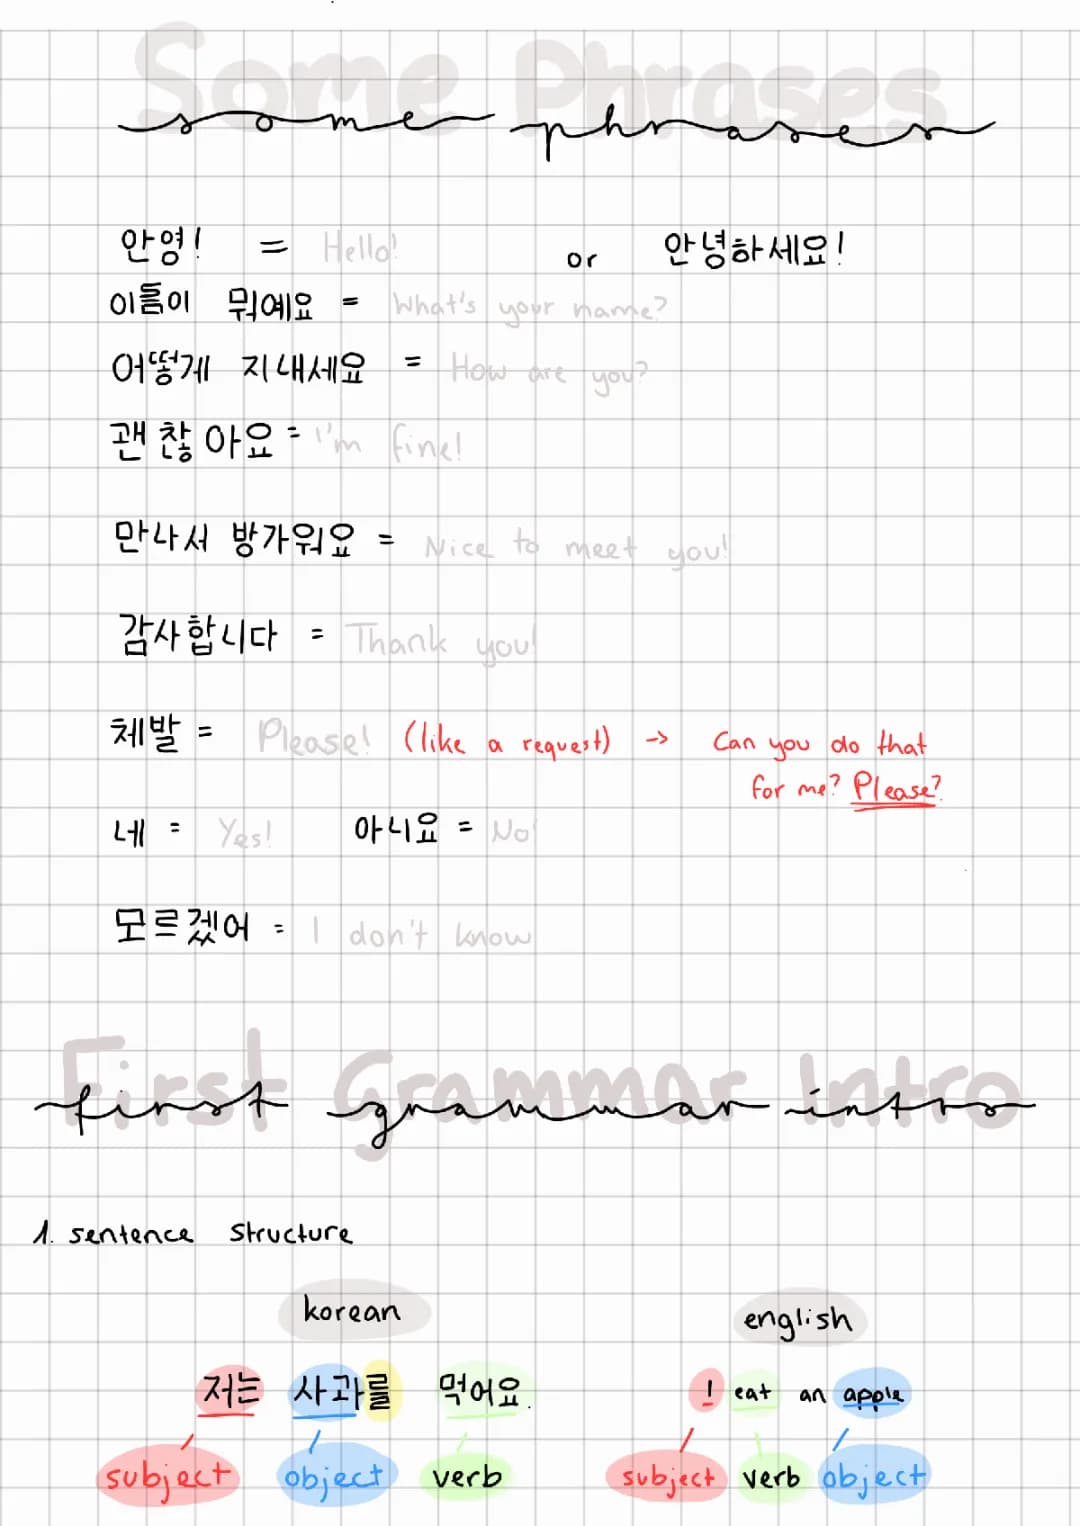 Some Phrases
some phrases
안영! = Hello! or 안녕하세요!
이름이 뭐예요 = What's your name?
어떻게 지내세요 = How are you?
괜찮아요 = I'm fine!
만나서 방가워요 = Nice to meet you!
감사합니다 = Thank you!
체발 = Please! (like a request) -> Can you do that
for me? Please?
네 = Yes! 아니요 = No!
모르겠어 = I don't know
First Grammar Intro
first grammar intro
1. sentence structure
korean english
저는 사과를 먹어요. I eat an apple
subject object verb subject verb object